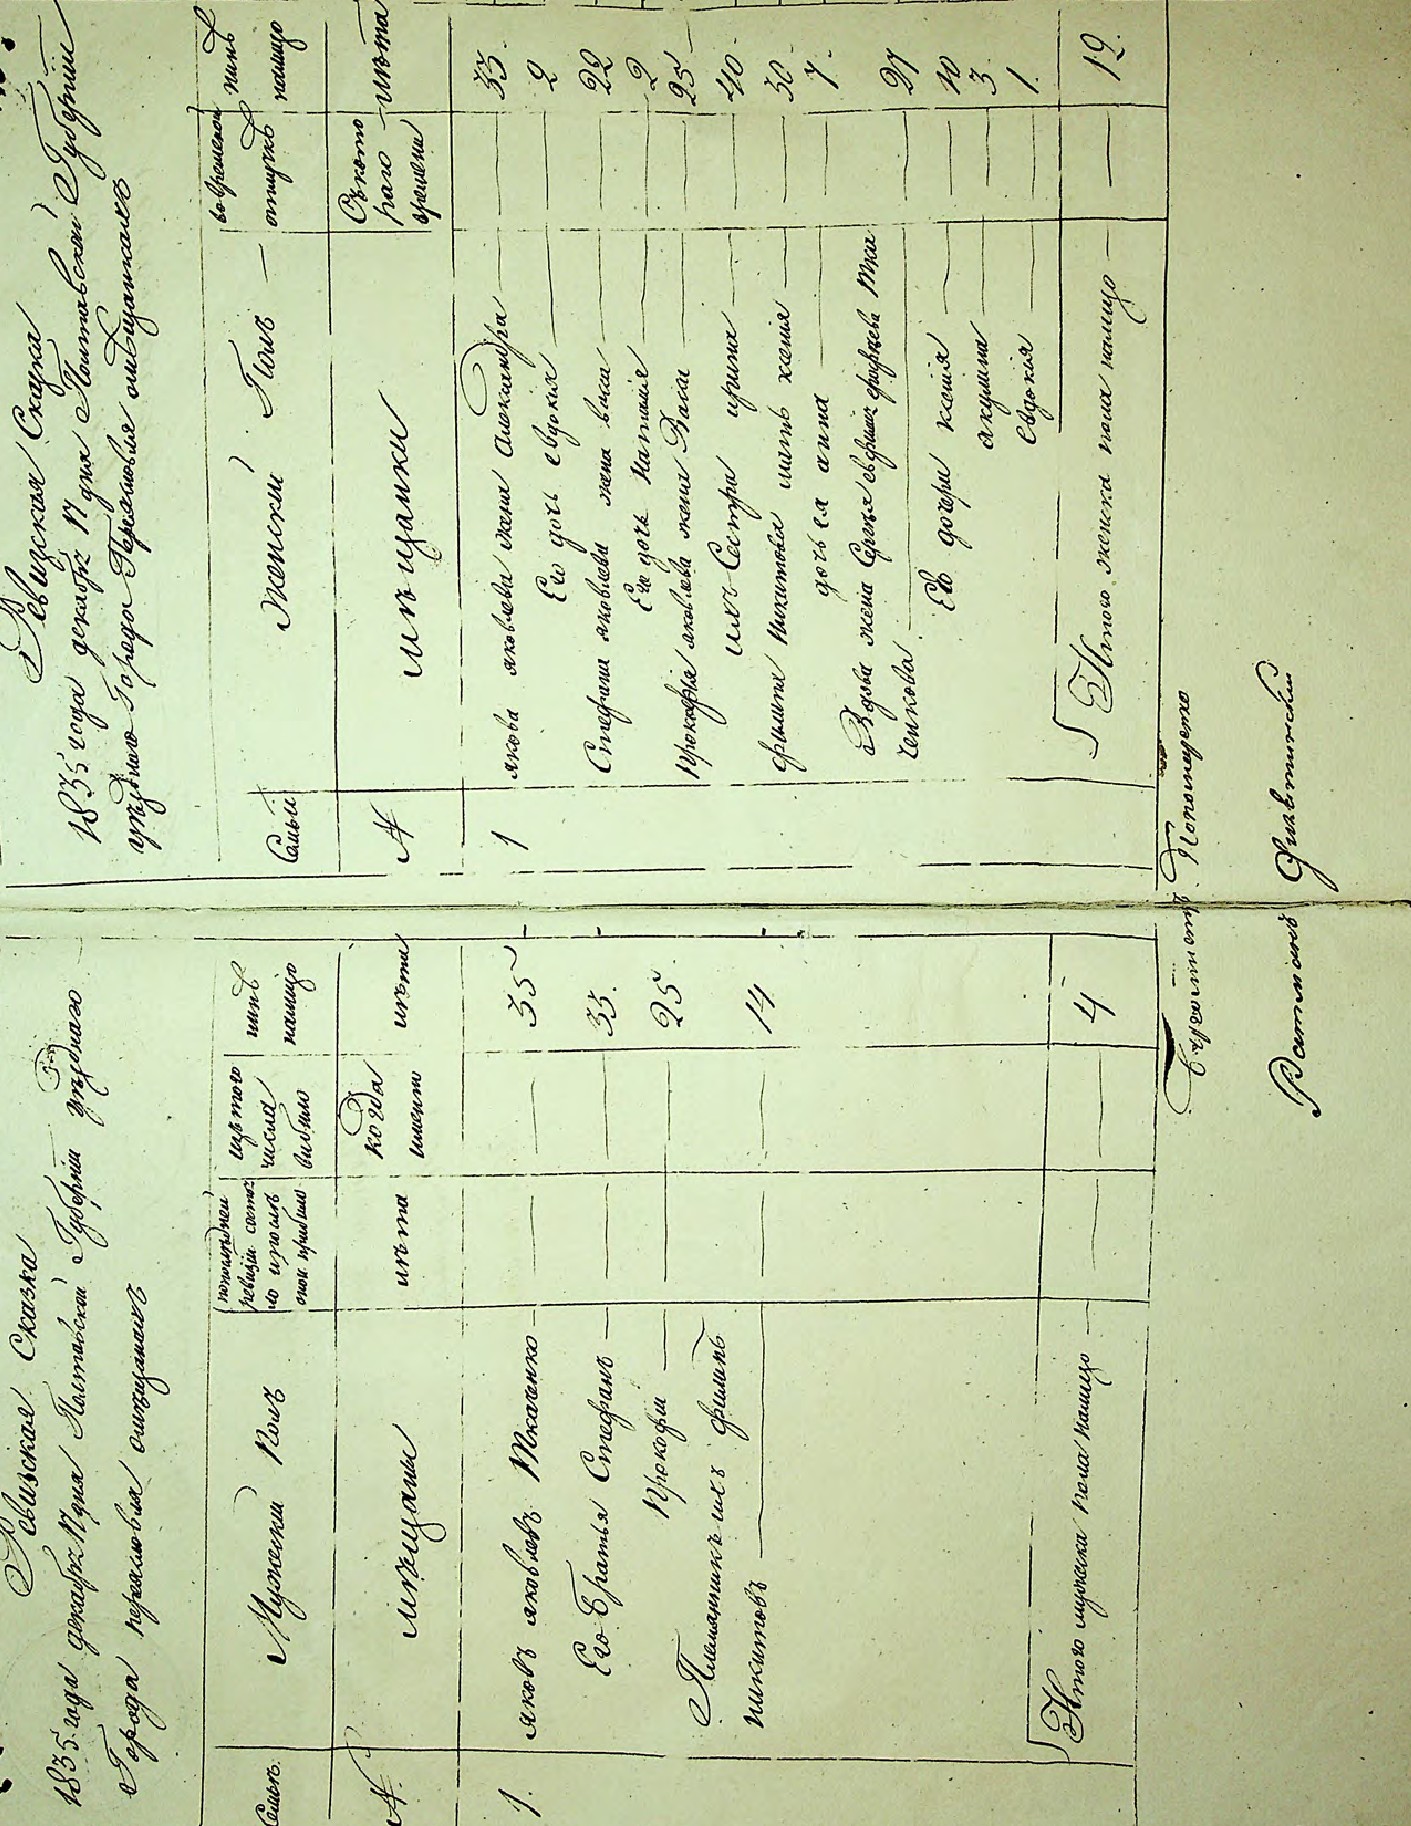 Ревизская Сказка
1835 года декабря 17 дня Полтавской Губернии уезднаго
Города переяслова омещанахъ
Семьи
Мужеский полъ
изтого числа выбыло
нынѣ налицо
№
мѣщане
лѣта
когда именно
лѣта
1.
яковъ яковлевъ Ткаченко
35
Его Братья Стефанъ
33.
Прокофiй
25
Племянникъ ихъ филипъ
никитовъ
14
Итого мужеска пола налицо
4
Ревизская Сказка
1835 года декабря 17 дня Полтавской Губернiи
уѣзднаго Города Переяслова омѣщанахъ
Семьи
Женский Полъ
вовременой отлучке
нынѣ налицо
№
мѣщанки
Ското раго времени
лѣта
1
якова яковлева жена Александра
33.
Его дочь евдокия
2
Стефана яковлева жена васса
22
Его дочь Наталия
2
Прокофiя яковлева жена
25
ихъ Сестра ирина
40.
филипа Никитова мать ксения
30.
дочь ея анна
7.
Вдова жена Сергея Тка
ченкова
27
Ея дочери ксенiя
10
акулина
3
евдокiя
1.
Итого женска пола налицо
12.
Ратманъ